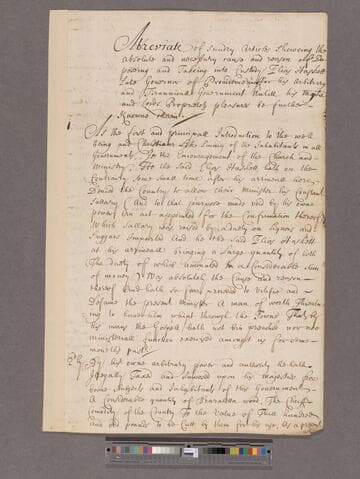 Abreviate of Sundry Articles Shewing the
absolute and necessary cause and reason of Deposing and Takeing into Custody Elias Haskett
Late Governor of Providence for his Arbitrary
and Tirannicall Government Untill his Majties
and Lords Proprietors pleasure be further
Knowne
As the first and principall Introduction to the well
being and Christian Living of the Inhabitants in all
Governments, Is the Encouragement of the Church and
Ministry, He the said Elias Haskett hath on the
Contrary some small time after his arriveall here
Denied the Country to allow their Minister his Constant
Sallary (And to that purpose made void by his owne
power an act appointed for the Confirmation thereof)
Which Sallary was raised by a duty on liquors and
Suggars Imported And he the said Elias Haskett
at his arriveall bringing a Large quantity of both
The duty of which amounted to a Considerable Sum
of money, Was absolutely the Cause and reason
thereof And hath so farr proceeded to Vilifie and
Defame the present Minister A man of worth Threatning
to him whipt through the Towne That by
his means the Gospell hath not bin preached nor
ministeriall function exercised amongst us for some
months past
2ly By his owne arbitrary power and authority he hath
Illegally Taxed and Imposed upon his majesties free
borne Subjects and Inhabitants of this Government
A Considerable quantity of Brazaletta wood, The Chief
Comodity of the Country To the Value of Three hundred
and odd pounds to be Cutt by them for his use, As a present